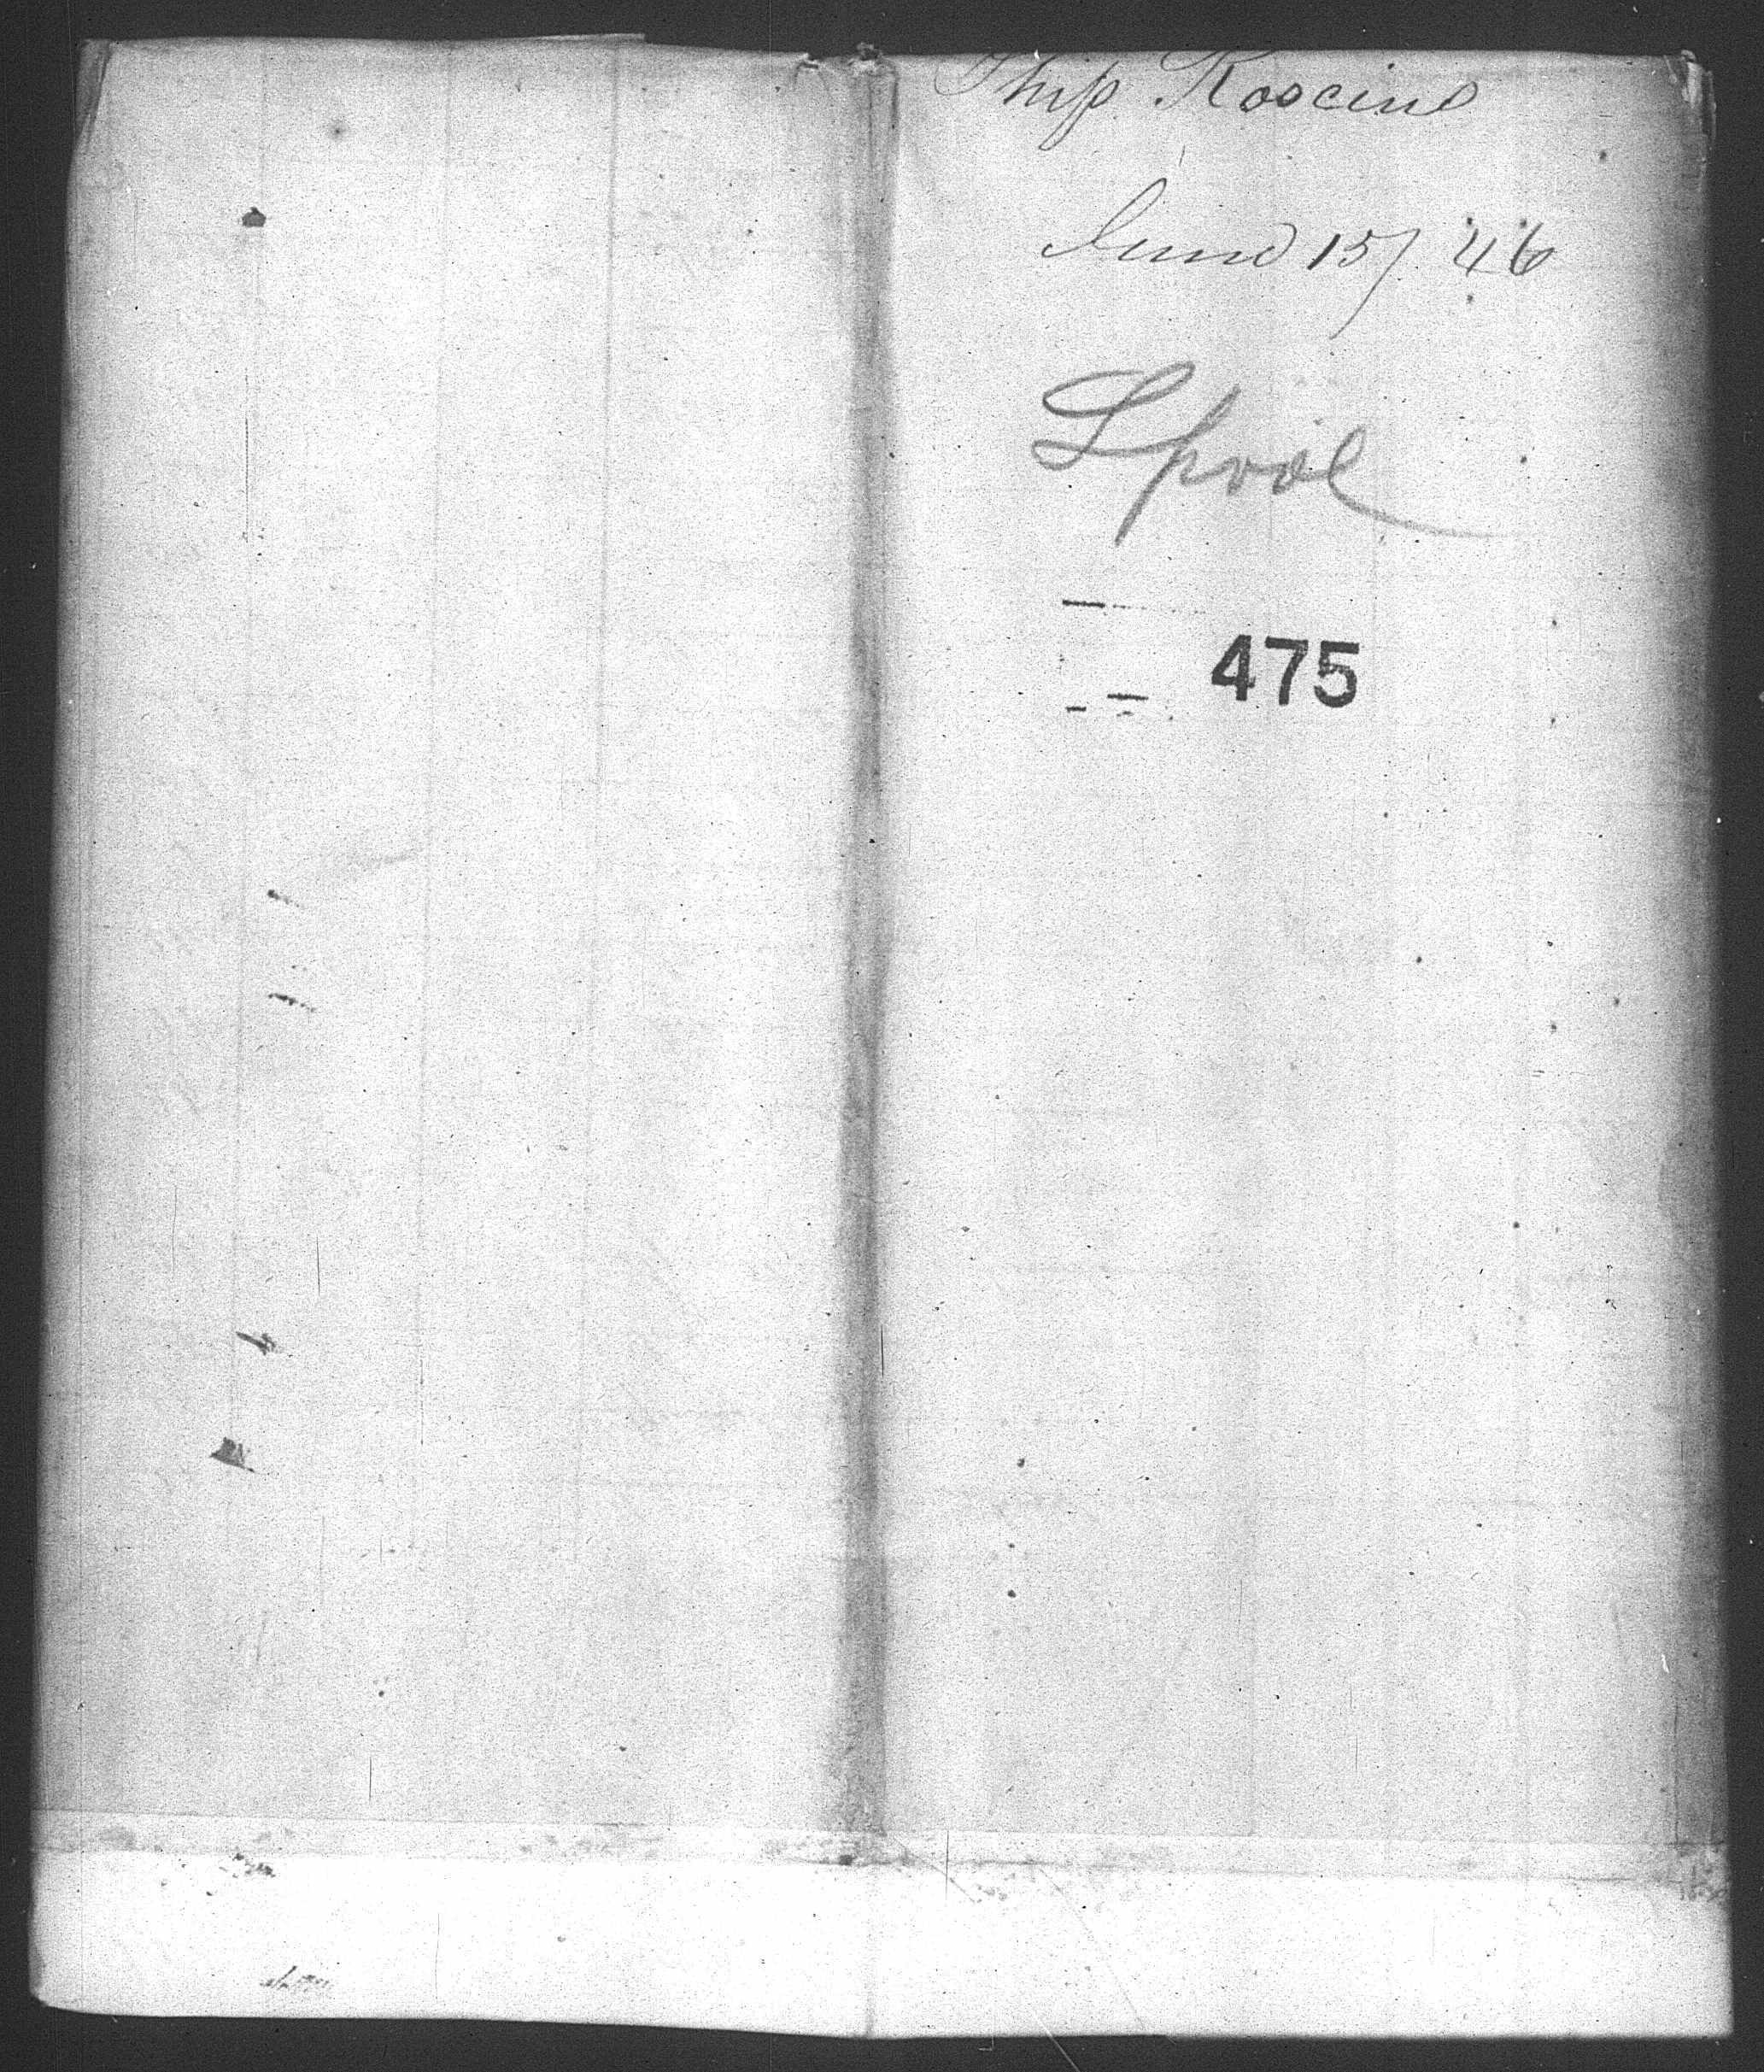 Ship Roscius
June 15/ 46
Lpool
475